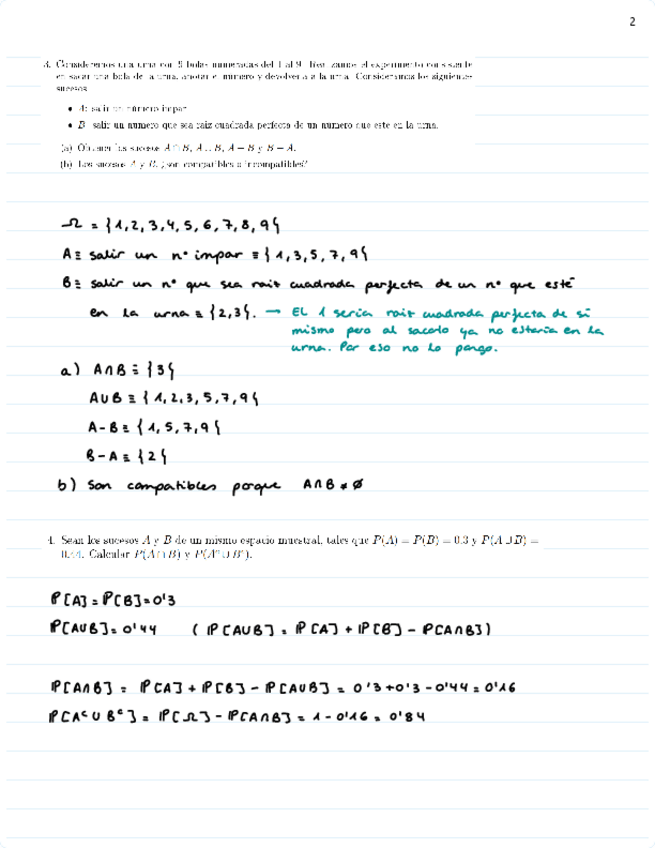 2
3. Consideremos una urna con 9 bolas numeradas del 1 al 9. Realizamos el experimento consistente
en sacar una bola de la urna, anotar el número y devolverla a la urna. Consideramos los siguientes
sucesos
• A: salir un número impar
• B: salir un número que sea raiz cuadrada perfecta de un número que esté en la urna.
(a) Obtener los sucesos A ∩ B, A ∪ B, A − B y B − A.
(b) Los sucesos A y B, ¿son compatibles o incompatibles?
Ω = {1,2,3,4,5,6,7,8,9}
A ≡ salir un nº impar ≡ {1,3,5,7,9}
B ≡ salir un nº que sea raiz cuadrada perfecta de un nº que esté
en la urna ≡ {2,3}. → EL 1 seria raiz cuadrada perfecta de si
mismo pero al sacarlo ya no estaria en la
urna. Por eso no lo pongo.
a) A∩B ≡ {3}
A∪B ≡ {1,2,3,5,7,9}
A-B ≡ {1,5,7,9}
B-A ≡ {2}
b) Son compatibles porque A∩B ≠ ∅
4. Sean los sucesos A y B de un mismo espacio muestral, tales que P(A) = P(B) = 0.3 y P(A ∪ B) =
0.44. Calcular P(A ∩ B) y P(Aᶜ ∪ Bᶜ).
P[A] = P[B] = 0'3
P[A∪B] = 0'44 ( P[A∪B] = P[A] + P[B] - P[A∩B])
P[A∩B] = P[A] + P[B] - P[A∪B] = 0'3+0'3-0'44 = 0'16
P[Aᶜ ∪ Bᶜ] = P[Ω] - P[A∩B] = 1 - 0'16 = 0'84